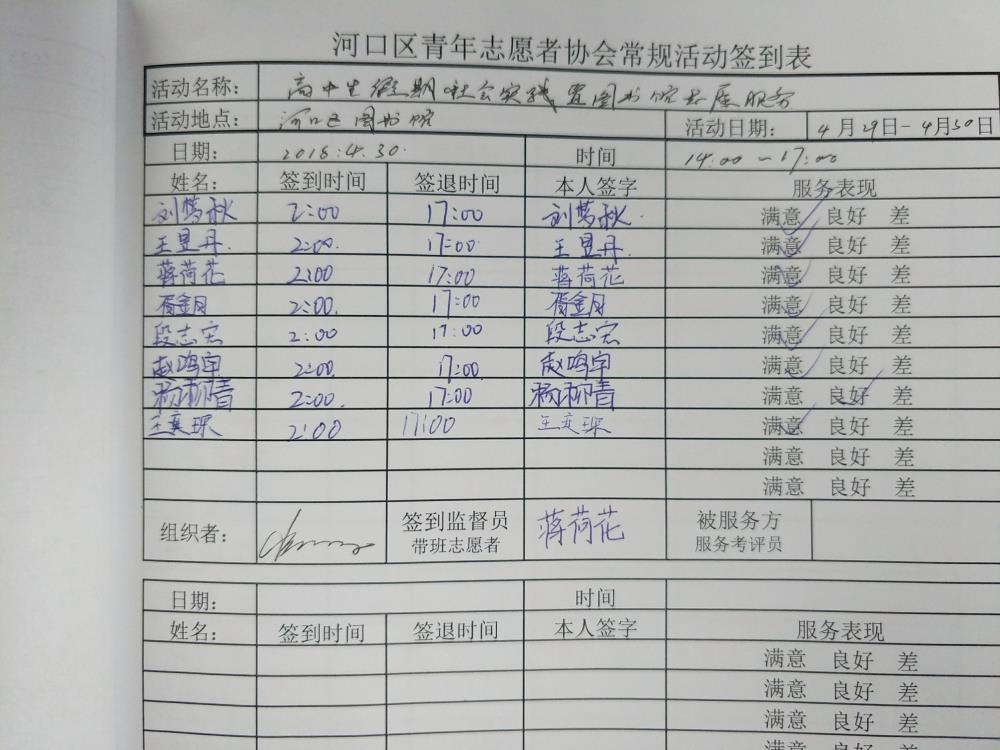 河口区青年志愿者协会常规活动签到表
活动名称： 高中生假期社会实践暨图书馆志愿服务
活动地点： 河口区图书馆 活动日期： 4月29日-4月30日
日期： 2018.4.30. 时间 14:00~17:00
姓名： 签到时间 签退时间 本人签字 服务表现
刘梦秋 2:00 17:00 刘梦秋 满意 良好 差
王昱丹 2:00. 17:00 王昱丹 满意 良好 差
蒋荷花 2:00 17:00 蒋荷花 满意 良好 差
2:00. 17:00 满意 良好 差
段志宏 2:00 17:00 段志宏 满意 良好 差
赵鸣宇 2:00. 17:00 赵鸣宇 满意 良好 差
杨柳青 2:00. 17:00 杨柳青 满意 良好 差
2:00 17:00 满意 良好 差
满意 良好 差
满意 良好 差
组织者： 签到监督员 蒋荷花 被服务方
带班志愿者 服务考评员
日期： 时间
姓名： 签到时间 签退时间 本人签字 服务表现
满意 良好 差
满意 良好 差
满意 良好 差
满意 良好 差